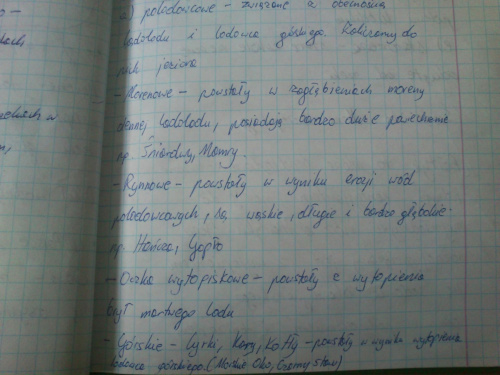 polodowcowe - związane z obecnością
lądolodu i lodowca górskiego. Zaliczamy do
nich jeziora
- Morenowe - powstały w zagłębieniach moreny
dennej lądolodu, posiadają bardzo duże powierzchnie
np. Śniardwy, Mamry.
- Rynnowe - powstały w wyniku erozji wód
polodowcowych, są wąskie, długie i bardzo głębokie
np. Hańcza, Gopło
- Oczka wytopiskowe - powstały z wytopienia
brył martwego lodu
- Górskie - Cyrki, Kary, Kotły - powstały w wyniku wytopienia
lodowca górskiego (Morskie Oko, Czarny Staw)